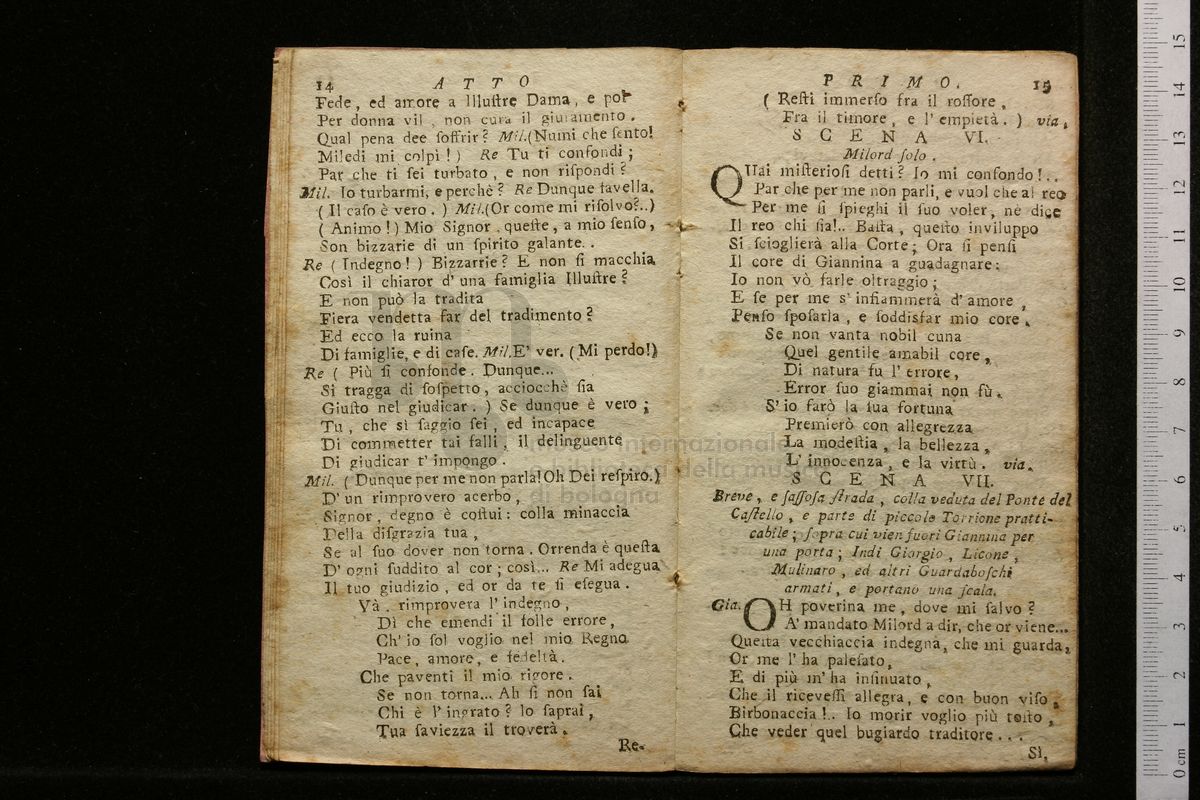 14 ATTO
Fede, ed amore a Illuſtre Dama, e poi
Per donna vil, non cura il giuramento.
Qual pena dee ſoffrir? Mil. (Numi che ſento!
Miledi mi colpì!) Re Tu ti confondi;
Par che ti ſei turbato, e non riſpondi?
Mil. Io turbarmi, e perchè? Re Dunque favella.
(Il caſo è vero.) Mil. (Or come mi riſolvo?..)
(Animo!) Mio Signor, queſte, a mio ſenſo,
Son bizzarie di un ſpirito galante..
Re (Indegno!) Bizzarrie? E non ſi macchia
Così il chiaror d'una famiglia Illuſtre?
E non può la tradita
Fiera vendetta far del tradimento?
Ed ecco la ruina
Di famiglie, e di caſe. Mil. E' ver. (Mi perdo!)
Re (Più ſi confonde. Dunque...
Si tragga di ſoſpetto, acciocchè ſia
Giuſto nel giudicar.) Se dunque è vero;
Tu, che sì ſaggio ſei, ed incapace
Di commetter tai falli, il delinquente
Di giudicar t'impongo.
Mil. (Dunque per me non parla! Oh Dei reſpiro.)
D'un rimprovero acerbo,
Signor, degno è coſtui: colla minaccia
Della diſgrazia tua,
Se al ſuo dover non torna. Orrenda è queſta
D'ogni ſuddito al cor; così... Re Mi adegua
Il tuo giudizio, ed or da te ſi eſegua.
Và, rimprovera l'indegno,
Dì che emendi il folle errore,
Ch'io ſol voglio nel mio Regno
Pace, amore, e fedeltà.
Che paventi il mio rigore.
Se non torna... Ah ſi non ſai
Chi è l'ingrato? Io ſaprai,
Tua ſaviezza il troverà.
Re.
PRIMO. 15
(Reſti immerſo fra il roſſore,
Fra il timore, e l'empietà.) via.
SCENA VI.
Milord ſolo.
QUai miſterioſi detti? Io mi confondo!..
Par che per me non parli, e vuol che al reo
Per me ſi ſpieghi il ſuo voler, nè dice
Il reo chi ſia!.. Baſta, queſto inviluppo
Si ſcioglierà alla Corte; Ora ſi penſi
Il core di Giannina a guadagnare:
Io non vò farle oltraggio;
E ſe per me s'infiammerà d'amore,
Penſo ſpoſarla, e ſoddisfar mio core.
Se non vanta nobil cuna
Quel gentile amabil core,
Di natura fu l'errore,
Error ſuo giammai non fù.
S'io farò la ſua fortuna
Premierò con allegrezza
La modeſtia, la bellezza,
L'innocenza, e la virtù. via.
SCENA VII.
Breve, e ſaſſoſa ſtrada, colla veduta del Ponte del
Caſtello, e parte di piccolo Torrione pratti-
cabile; ſopra cui vien fuori Giannina per
una porta; Indi Giorgio, Licone,
Mulinaro, ed altri Guardaboſchi
armati, e portano una ſcala.
Gia. OH poverina me, dove mi ſalvo?
A' mandato Milord a dir, che or viene...
Queſta vecchiaccia indegna, che mi guarda,
Or me l'ha paleſato,
E di più m'ha inſinuato,
Che il riceveſſi allegra, e con buon viſo,
Birbonaccia!.. Io morir voglio più toſto,
Che veder quel bugiardo traditore...
Sì,
museo internazionale
e biblioteca della musica
di bologna
0 cm 1 2 3 4 5 6 7 8 9 10 11 12 13 14 15